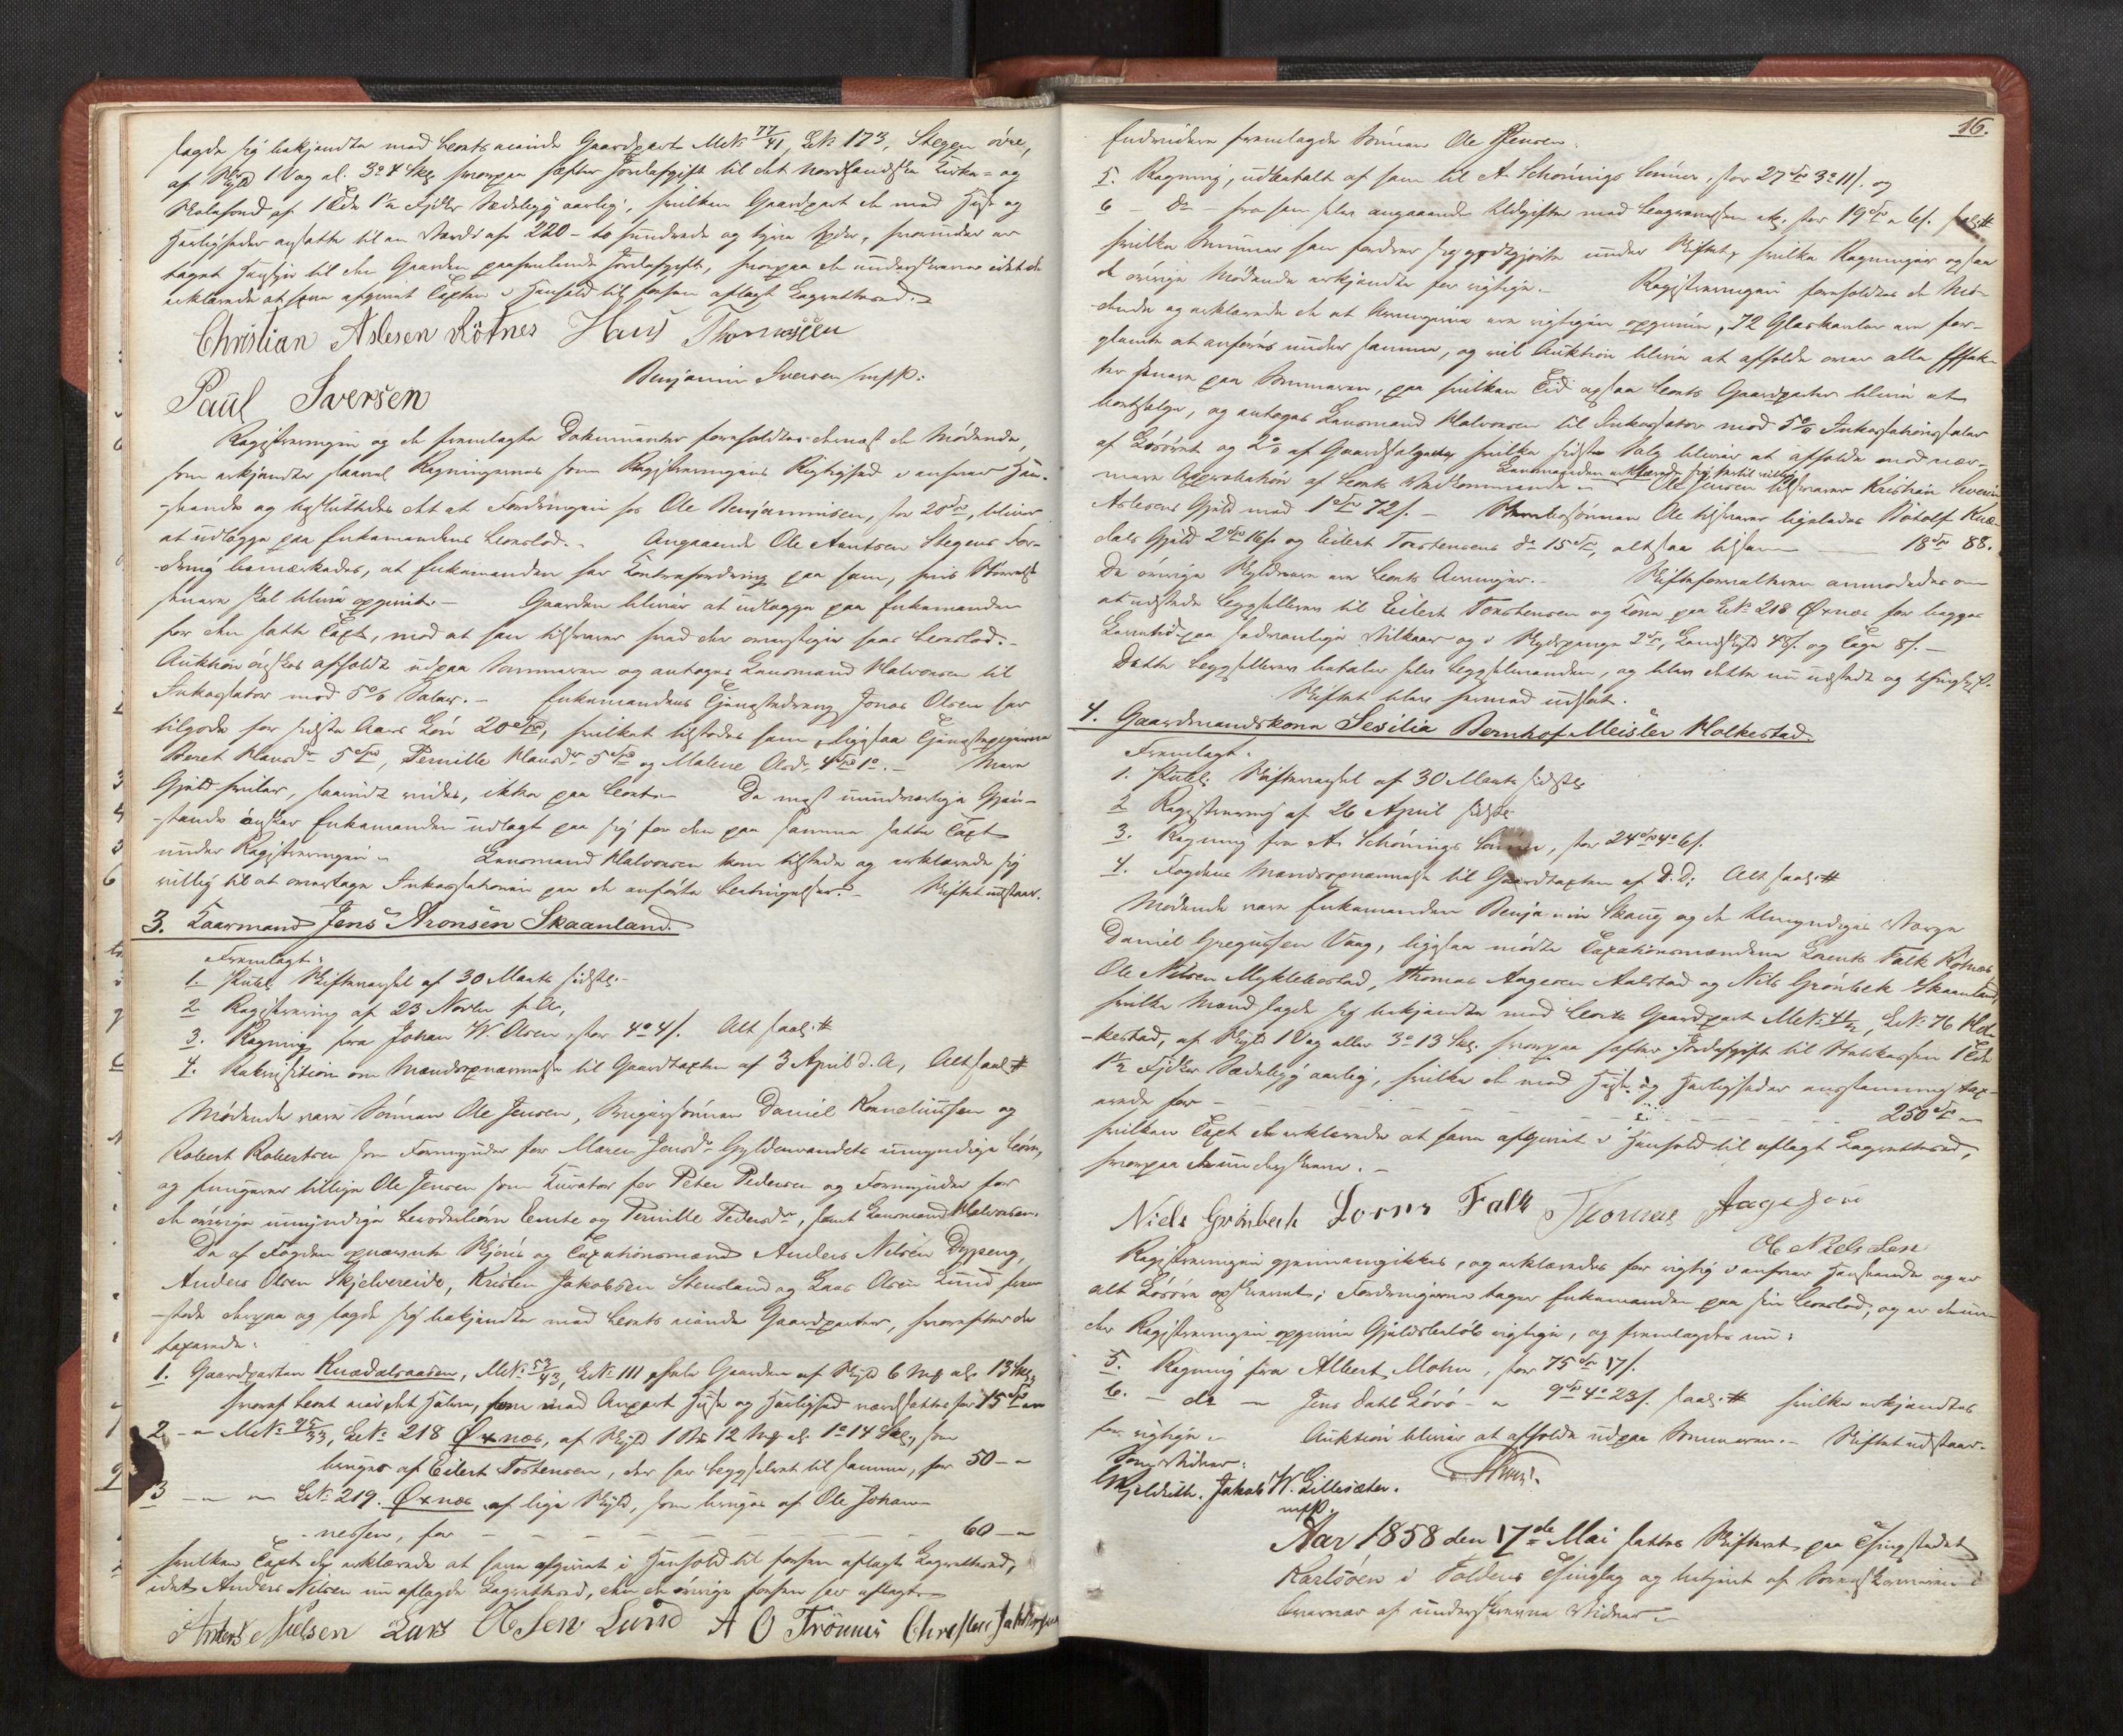 sagde sig bekjendte med Boets eiende Gaardpart MNo 77/41, LNo 173, Steigen øvre,
af Skyld 1 Vog el. 3o 4 Skg hvorpaa hefter Jordafgift til det nordlandske Kirke- og
Skolefond af 1 Tde 1 1/2 aarlig, hvilken Gaardpart de med Huse og
Herligheder ansatte til en Værdi af 220 - to hundrede og tyve Spdr, hvorunder er
taget Hensyn til den Gaarden paahvilende Jordafgift, hvorpaa de underskreve idet de
erklærede at have afgivet Taxten i Henhold til forhen aflagt Lagrettesed.
Christian Aslesen Rötnes Hans Thomassen
Paul Iversen
Benjamin Iversen mpp:
Registreringen og de fremlagte Dokumenter foreholdtes dernæst de Mødende,
som erkjendte saavel Regningernes som Registreringens Rigtighed i enhver Hen-
seende og besluttedes det at Fordringen fra Ole Benjaminsen, stor 20 Spd, bliver
at udlægge paa Enkemandens Boeslod. - Angaaende Ole Arntsen Stegens For-
dring bemærkedes, at Enkemanden har Contrafordring paa ham, hvis Størrelse
senere skal blive opgivet. - Gaarden bliver at udlægge paa Enkemanden
for den satte Taxt, mod at han tilsvarer hvad der overstiger hans Boeslod. -
Auktion ønskes afholdt udpaa Sommeren og antoges Lensmand Halvorsen til
Inkassator mod 5 % Salær. - Enkemandens Tjenestedreng Jonas Olsen har
tilgode for sidste Aars Løn 20 Spd, hvilket tilstodes ham, ligesaa Tjenestepigerne
Beret Hansdr 5 Spd, Pernille Hansdr 5 Spd og Malene Olsdr 4 Spd 1o. - Mere
Gjeld hviler, saavidt vides, ikke paa Boet. - De mest uundværlige Gjen-
stande ønsker Enkemanden udlagt paa sig for den paa samme satte Taxt
under Registreringen. - Lensmand Halvorsen kom tilstede og erklærede sig
villig til at overtage Inkassationen paa de anførte Betingelser. - Skiftet udstaar.
3. Kaarmand Jens Aronsen Skaanland.
Fremlagt:
1. Publ. Skiftevarsel af 30 Marts sidstl. -
2 Registrering af 23 Novbr f. A.,
3. Regning fra Johan W. Olsen, stor 4o 4 s. Alt saal. #
4. Rekvisition om Mandsopnævnelse til Gaardtaxten af 3 April d. A, Alt saal #
Mødende vare Sønnen Ole Jensen, Svigersønnen Daniel Korneliussen og
Robert Robertsen som Formynder for Maren Jensdr Gyldenvandets umyndige Børn,
og fungerer tillige Ole Jensen som Kurator for Peter Pedersen og Formynder for
de øvrige umyndige Broderbørn Bente og Pernille Pedersdr, samt Lensmand Halvorsen.
De af Fogden opnævnte Skjøns og Taxationsmænd Anders Nilsen Dypeng,
Anders Olsen Skjelvereide, Kristen Jakobsen Stensland og Lars Olsen Lund frem-
stode derpaa og sagde sig bekjendte med Boets eiende Gaardparter, hvorefter de
taxerede:
1. Gaardparten Knædalsaasen, MNo 53/43, LNo 111 hele Gaarden af Skyld 6 Mk el. 13 Skg,
hvoraf Boet eier det Halve, som med Anpart Huse og Herlighed værdsattes for 15 Spd -
2 - - MNo 95/33, LNo 218 Øxnæs, af Skyld 1 12 Mk el. 1o 14 Skg, som
bruges af Eilert Tostensen, der har Bygselbret til samme, for 50 - -
3 - - - LNo 219. Øxnæs af lige Skyld, som bruges af Ole Johan-
nessen, for - - - - - 60 - -
hvilken Taxt de erklærede at have afgivet i Henhold til forhen aflagte Lagrettesed,
idet Anders Nilsen nu aflagde Lagrettesed, den de øvrige forhen har aflagt.
Anders Nielsen Lars Olsen Lund A O Trönnes Christen Jakobsen
16.
Endvidere fremlagde Sønnen Ole Jensen:
5. Regning, udbetalt af ham til A. Schönings Sönner, stor 27 Spd 3o 11 s. og
6 - do - fra ham selv angaaende Udgifter med Begravelsen etc. stor 19 Spd " 6 s. saal. #
hvilke Summer han fordrer sig godtgjorte under Skiftet, hvilke Regninger ogsaa
de øvrige Mødende erkjendte for rigtige. - Registreringen foreholdtes de Mø-
dende og erklærede de at Arvingerne ere rigtigen opgivne, 72 Glaskavler ere for-
glemte at anføres under samme, og vil Auktion blive at afholde over alle Effek-
ter senere paa Sommeren, paa hvilken Tid ogsaa Boets Gaardparter blive at
bortsælge, og antoges Lensmand Halvorsen til Inkassator mod 5 % Inkassationssalær
af Løsøret og 2 % af Gaardsalget, hvilke sidste Salg bliver at afholde mod nær-
mere Approbation af Boets Vedkommende - Lensmanden erklærede sig hertil villig. Ole Jensen tilsvarer Kristian Severin
Aslesens Gjeld med 1 Spd 72 s. - Sønnen Ole tilsvarer ligeledes Botolf Knæ-
dals Gjeld 2 Spd 16 s. og Eilert Torstensens do 15 Spd, altsaa tilsam - 18 Spd 88.
De øvrige Skyldnere ere Boets Arvinger. - Skifteforvalteren anmodedes om
at udstede Bygselbrev til Eilert Torstensen og Kone paa LNo 218 Øxnæs for begges
Levetid paa sædvanlige Vilkaar og 2 Spd, Landskyld 48 s. og Tage 8 s. -
Dette Bygselbrev betaler selv Bygselmanden, og blev dette nu udstedt og thinglyst.
Skiftet blev hermed udsat.
4. Gaardmandskone Sesilia Bernhof Meisler Holkestad.
Fremlagt:
1. Publ. Skiftevarsel af 30 Marts sidstl.
2 Registrering af 26 April sidstl.
3. Regning fra A. Schönings Sönner, stor 24 Spd 4o 6 s.
4. Fogdens Mandsopnævnelse til Gaardtaxten af D. D: Alt saal. #
Mødende vare Enkemanden Benjamin Skaug og de Umyndiges Værge
Daniel Gregussen Vaag, ligesaa mødte Taxationsmændene Lorents Falk Röthnes,
Ole Nilsen Myklebostad, Thomas Aagesen Aalstad og Nils Grönbek Skaanland,
hvilke Mænd sagde sig bekjendte med Boets Gaardpart MNo 41/2, LNo 76 Hol-
kestad, af Skyld 1 Vog eller 3o 13 Skg. hvorpaa hefter Jordafgift til Statskassen 1 Tde
1 1/2 aarlig, hvilke de med Huse og Herligheder enstemmig tax-
erede for - - - - - 250 Spd -
hvilken Taxt de erklærede at have afgivet i Henhold til aflagt Lagrettesed,
hvorpaa de underskreve. -
Niels Grönbech Lorns Falk Thomas Aagesen
Ole Nielsen
Registreringen gjennemgikkes, og erklæredes for rigtig i enhver Henseende og er
alt Løsøre opskrevet; Fordringerne tager Enkemanden paa sin Boeslod, og er denne
der Registreringen opgivne Gjeldsbeløb rigtige, og fremlagdes nu:
5. Regning fra Albert Mohn, stor 75 Spd 17 s.
6. - do - Jens Dahl Lövö - - 9 Spd 4o 23 s. saal. # hvilke erkjendtes
for rigtige. - Auktion bliver at afholde udpaa Sommeren. - Skiftet udstaar.
Som Vidner:
Jakob W. Lillesæter.
mpp.
Aar 1858 den 17de Mai sattes Skifteret paa Thingstedet
Karlsöen i Foldens Thinglag og betjent af Sorenskriveren i
Overvær af underskrevne Vidner. -